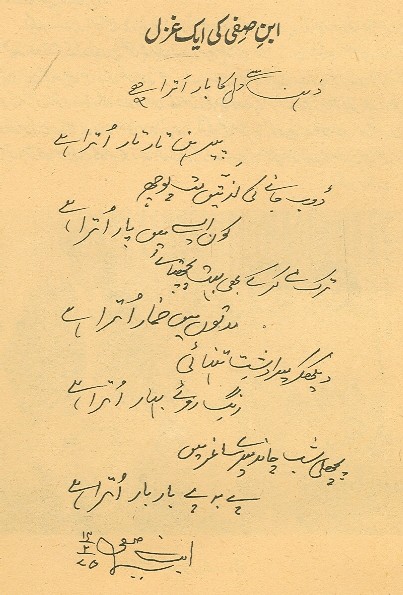 ابنِ صفی کی ایک غزل
ذہن سے دل کا بار اُترا ہے
پیرہن تار تار اُترا ہے
ڈوب جانے کی لذتیں مت پوچھ
کون ایسے میں پار اُترا ہے
ترکِ مے کر کے بھی بہت پچھتائے
مدتوں میں خمار اُترا ہے
دیکھکر میرا دشتِ تنہائی
رنگِ روئے بہار اُترا ہے
پچھلی شب چاند میرے ساغر میں
پے بہ پے بار بار اُترا ہے
ابنِ صفی